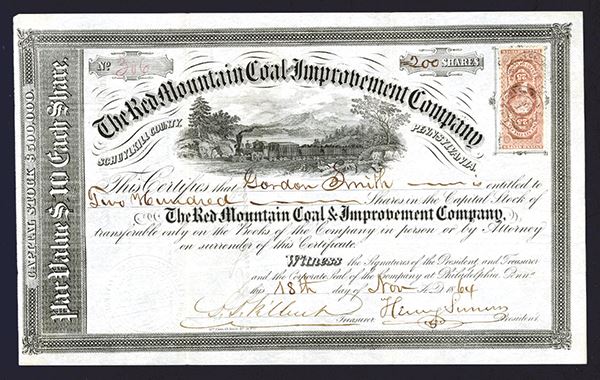 No 306
200 SHARES
The Red Mountain Coal Improvement Company
SCHUYLKILL COUNTY, PENNSYLVANIA.
This Certifies that Gordon Smith is entitled to
Two Hundred Shares in the Capital Stock of
The Red Mountain Coal & Improvement Company,
transferable only on the Books of the Company in person or by Attorney
on surrender of this Certificate.
Witness the Signatures of the President, and Treasurer
and the Corporate Seal of the Company at Philadelphia, Penna
this 18th day of Nov A.D. 1864
Treasurer. Henry President.
CAPITAL STOCK $500,000.
Par Value $10 Each Share.